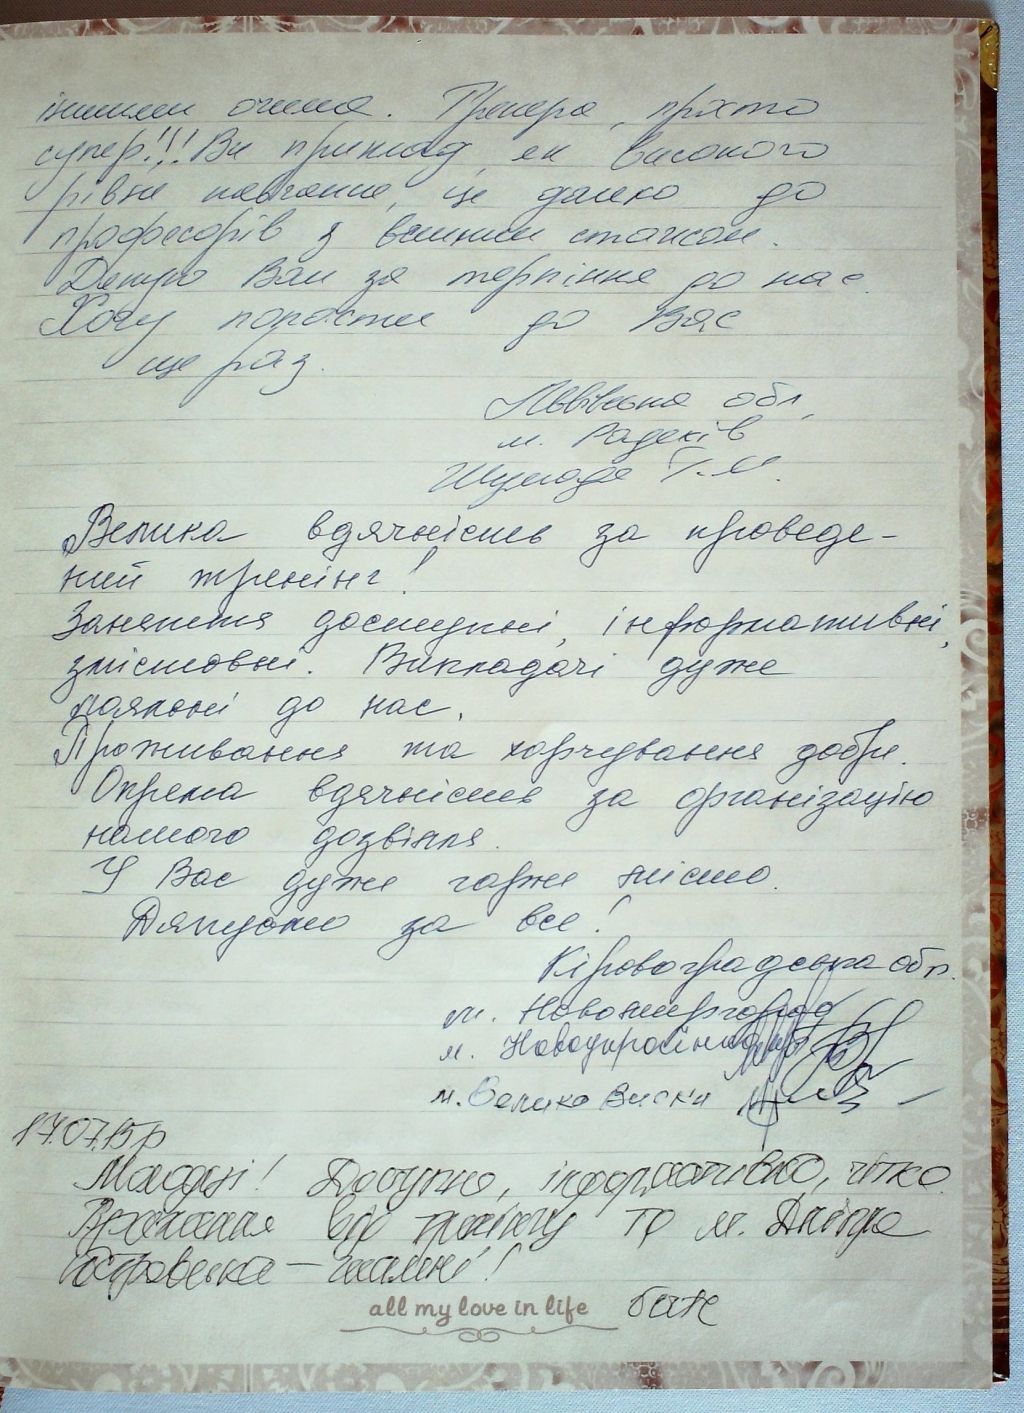 іншими очима. Тренера, просто
супер!!! Ви приклад, як високого
рівня навчання, це далеко до
професорів з великим стажом.
Дякую Вам за терпіння до нас.
Хочу попасти до Вас
ще раз.
Львівська обл,
м. Радехів
Велика вдячність за проведе-
ний тренінг!
Заняття доступні, інформативні,
змістовні. Викладачі дуже
лояльні до нас.
Проживання та харчування добрі.
Окрема вдячність за організацію
нашого дозвілля.
У Вас дуже гарне місто.
Дякуємо за все!
Кіровоградська обл.
м. Новомиргород
м. Новоукраїнка
м. Велика Виски
17.07.15р
Молодці! Доступно, інформативно, чітко.
Враження від тренінгу та м. Дніпро
петровська – гарні!
all my love in life